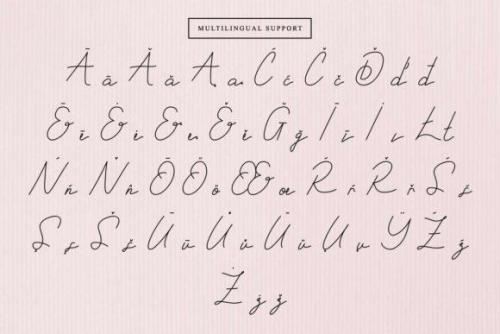 MULTILINGUAL SUPPORT
Ā ā Ă ă Ą ą Ć ć Č č Ď ď đ
Ē ē Ė ė Ę ę Ě ě Ğ ğ Ī ī Į į Ł ł
Ń ń Ň ň Ō Ő ő Œ œ Ŕ ŕ Ř ř Ś ś
Ş ş Š š Ū ū Ů ů Ű ű Ų ų Ÿ Ź ź
Ž ż ž